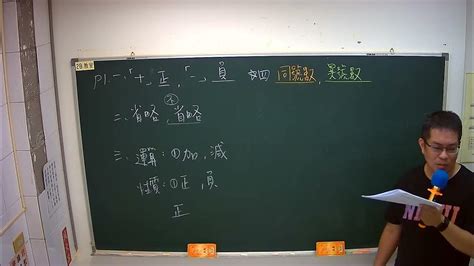 P1. 一、「十」正,「-」負 四 同號數, 異號數
二、省略, 省略
三、運算:①加,減
性質:①正,負
正